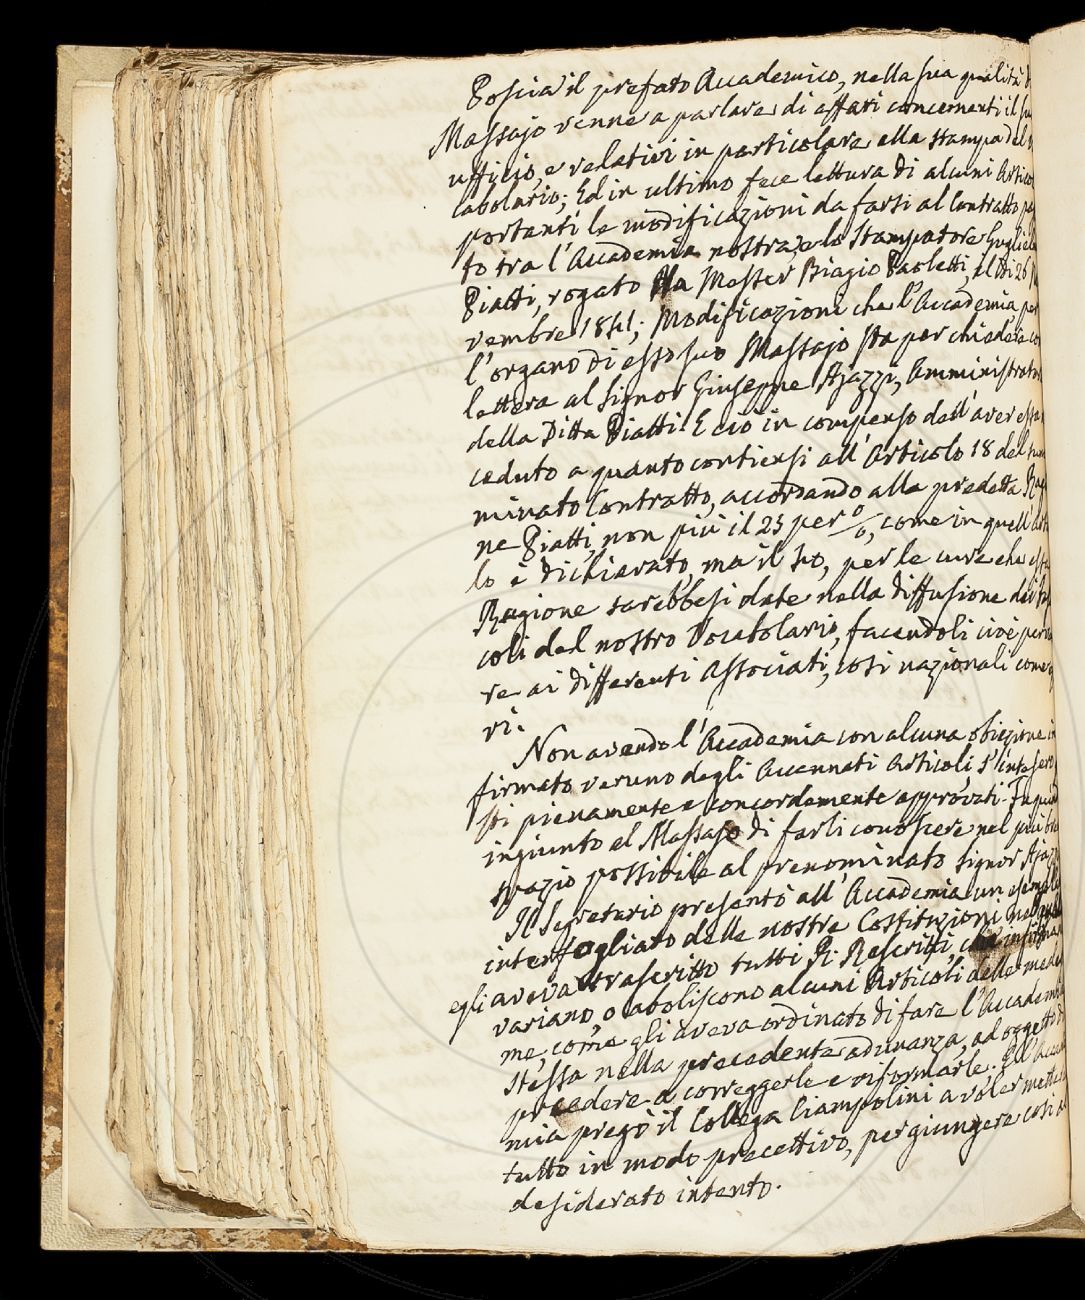 Poscia il prefato Accademico, nella sua qualità
Massajo venne a parlare di affari concernenti il
ufficio, e relativi in particolare alla stampa del
cabolario; Ed in ultimo fece lettura di alcuni Artico
portanti le modificazioni da farsi al Contratto
to tra l'Accademia nostra, e lo Stampatore Guglielm
Piatti, rogato Messer Biagio Paoletti, il dì 26
vembre 1841; Modificazioni che l'Accademia per
l'organo di esso suo Massajo sta per chiedere
lettera al Signor Giuseppe Ajazzi, Amministrator
della Ditta Piatti. E ciò in compenso dell'aver essa
ceduto a quanto contiensi all'Articolo 18 del
minato Contratto, accordando alla predetta Rag
ne Piatti, non più il 25 per %, come in quell'
lo è dichiarato, ma il 40, per le cure che
Ragione sarebbesi date nella diffusione dei
coli del nostro Vocabolario, facendoli cioè
re ai differenti Associati, così nazionali come
ri.
Non avendo l'Accademia con alcuna obiezione
firmato veruno degli Accennati Articoli, s'intesero
sti pienamente e concordemente approvati. Fu
ingiunto al Massajo di farli conoscere nel più
spazio possibile al prenominato Signor Ajazzi
Il Segretario presentò all'Accademia un esempla
interfogliato delle nostre Costituzioni
egli aveva trascritto tutti i R. Rescritti, che
variano, o aboliscono alcuni Articoli delle mede
me, come gli aveva ordinato di fare l'Accademia
stessa nella precedente adunanza, ad oggetto di
procedere a correggerle e riformarle. E l'Accade
mia pregò il Collega Ciampolini a voler mettere
tutto in modo precettivo, per giungere così al
desiderato intento.